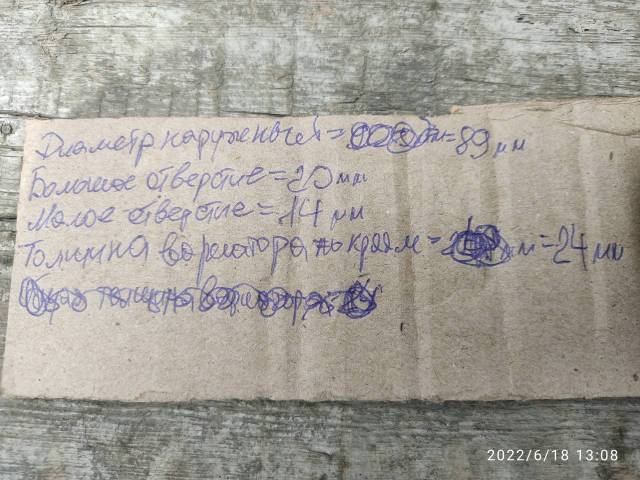 Диаметр наружный = = 89 мм
Большое отверстие = 20 мм
Малое отверстие = 14 мм
Толщина вариатора по краям = мм = 24 мм
2022/6/18 13:08